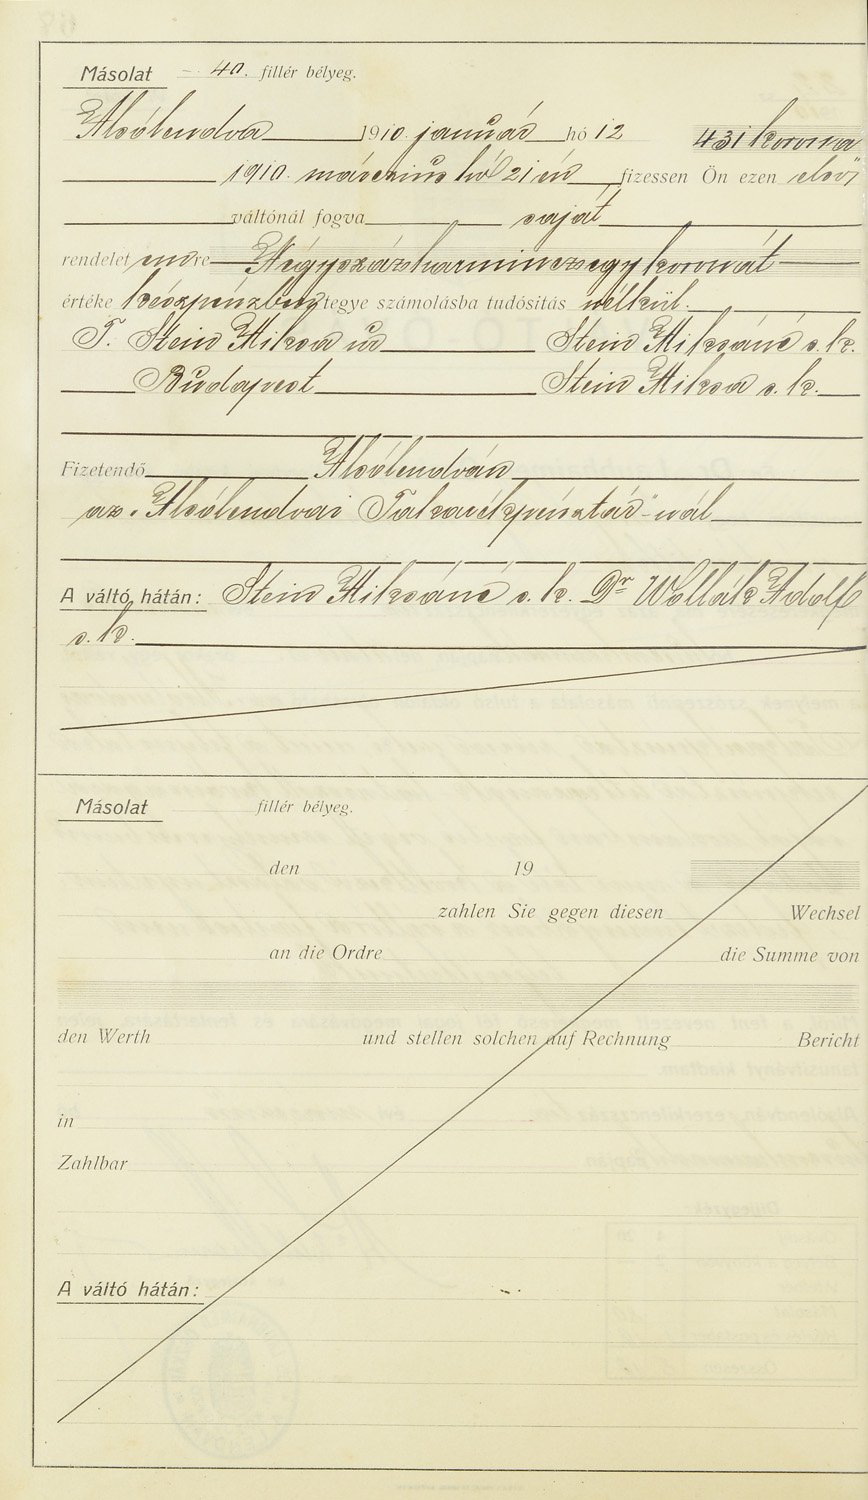 Másolat 40. fillér bélyeg.
Alsólendva 1910. január hó 12 431 korona
1910. márczius hó 21 én fizessen Ön ezen első
váltónál fogva saját
rendeletemre Négyszázharminczegy koronát
értéke készpénzben tegye számolásba tudósitás nélkül.
T. Stein Miksa úr Stein Miksáné s. k.
Budapest Stein Miksa s. k.
Fizetendő Alsólendván
az „Alsólendvai Takarékpénztár"-nál
A váltó hátán: Stein Miksáné s. k. Dr Wollák Adolf
s. k.
Másolat fillér bélyeg.
den 19
zahlen Sie gegen diesen Wechsel
an die Ordre die Summe von
den Werth und stellen solchen auf Rechnung Bericht
in
Zahlbar
A váltó hátán: